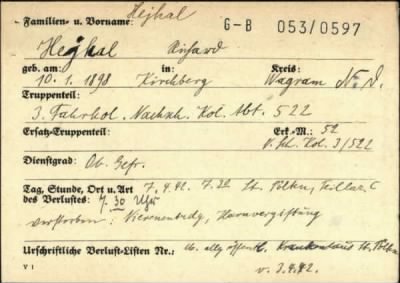 Hejhal
Familien- u. Vorname: G-B 053/0597
Hejhal Richard
geb. am: in: Kreis:
10.1.1898 Kirchberg Wagram N.D.
Truppenteil:
3. Fahrkol. Nachsch. Kol. Abt. 522
Ersatz-Truppenteil: Erk.-M.: 52
Kol. 3/522
Dienstgrad: Ob. Gefr.
Tag, Stunde, Ort u. Art 7.4.42. 7.30 St. Pölten,
des Verlustes: 7.30 Uhr
verstorben: Harnvergiftung
Urschriftliche Verlust-Listen Nr.: öffentl. Krankenhaus St. Pölten
V 1 v. 3.4.42.